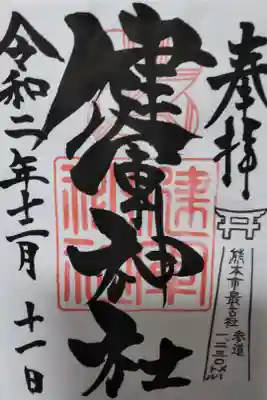 奉拝
熊本市最古社 参道
一二三〇メートル
健軍神社
令和二年十二月 十一日